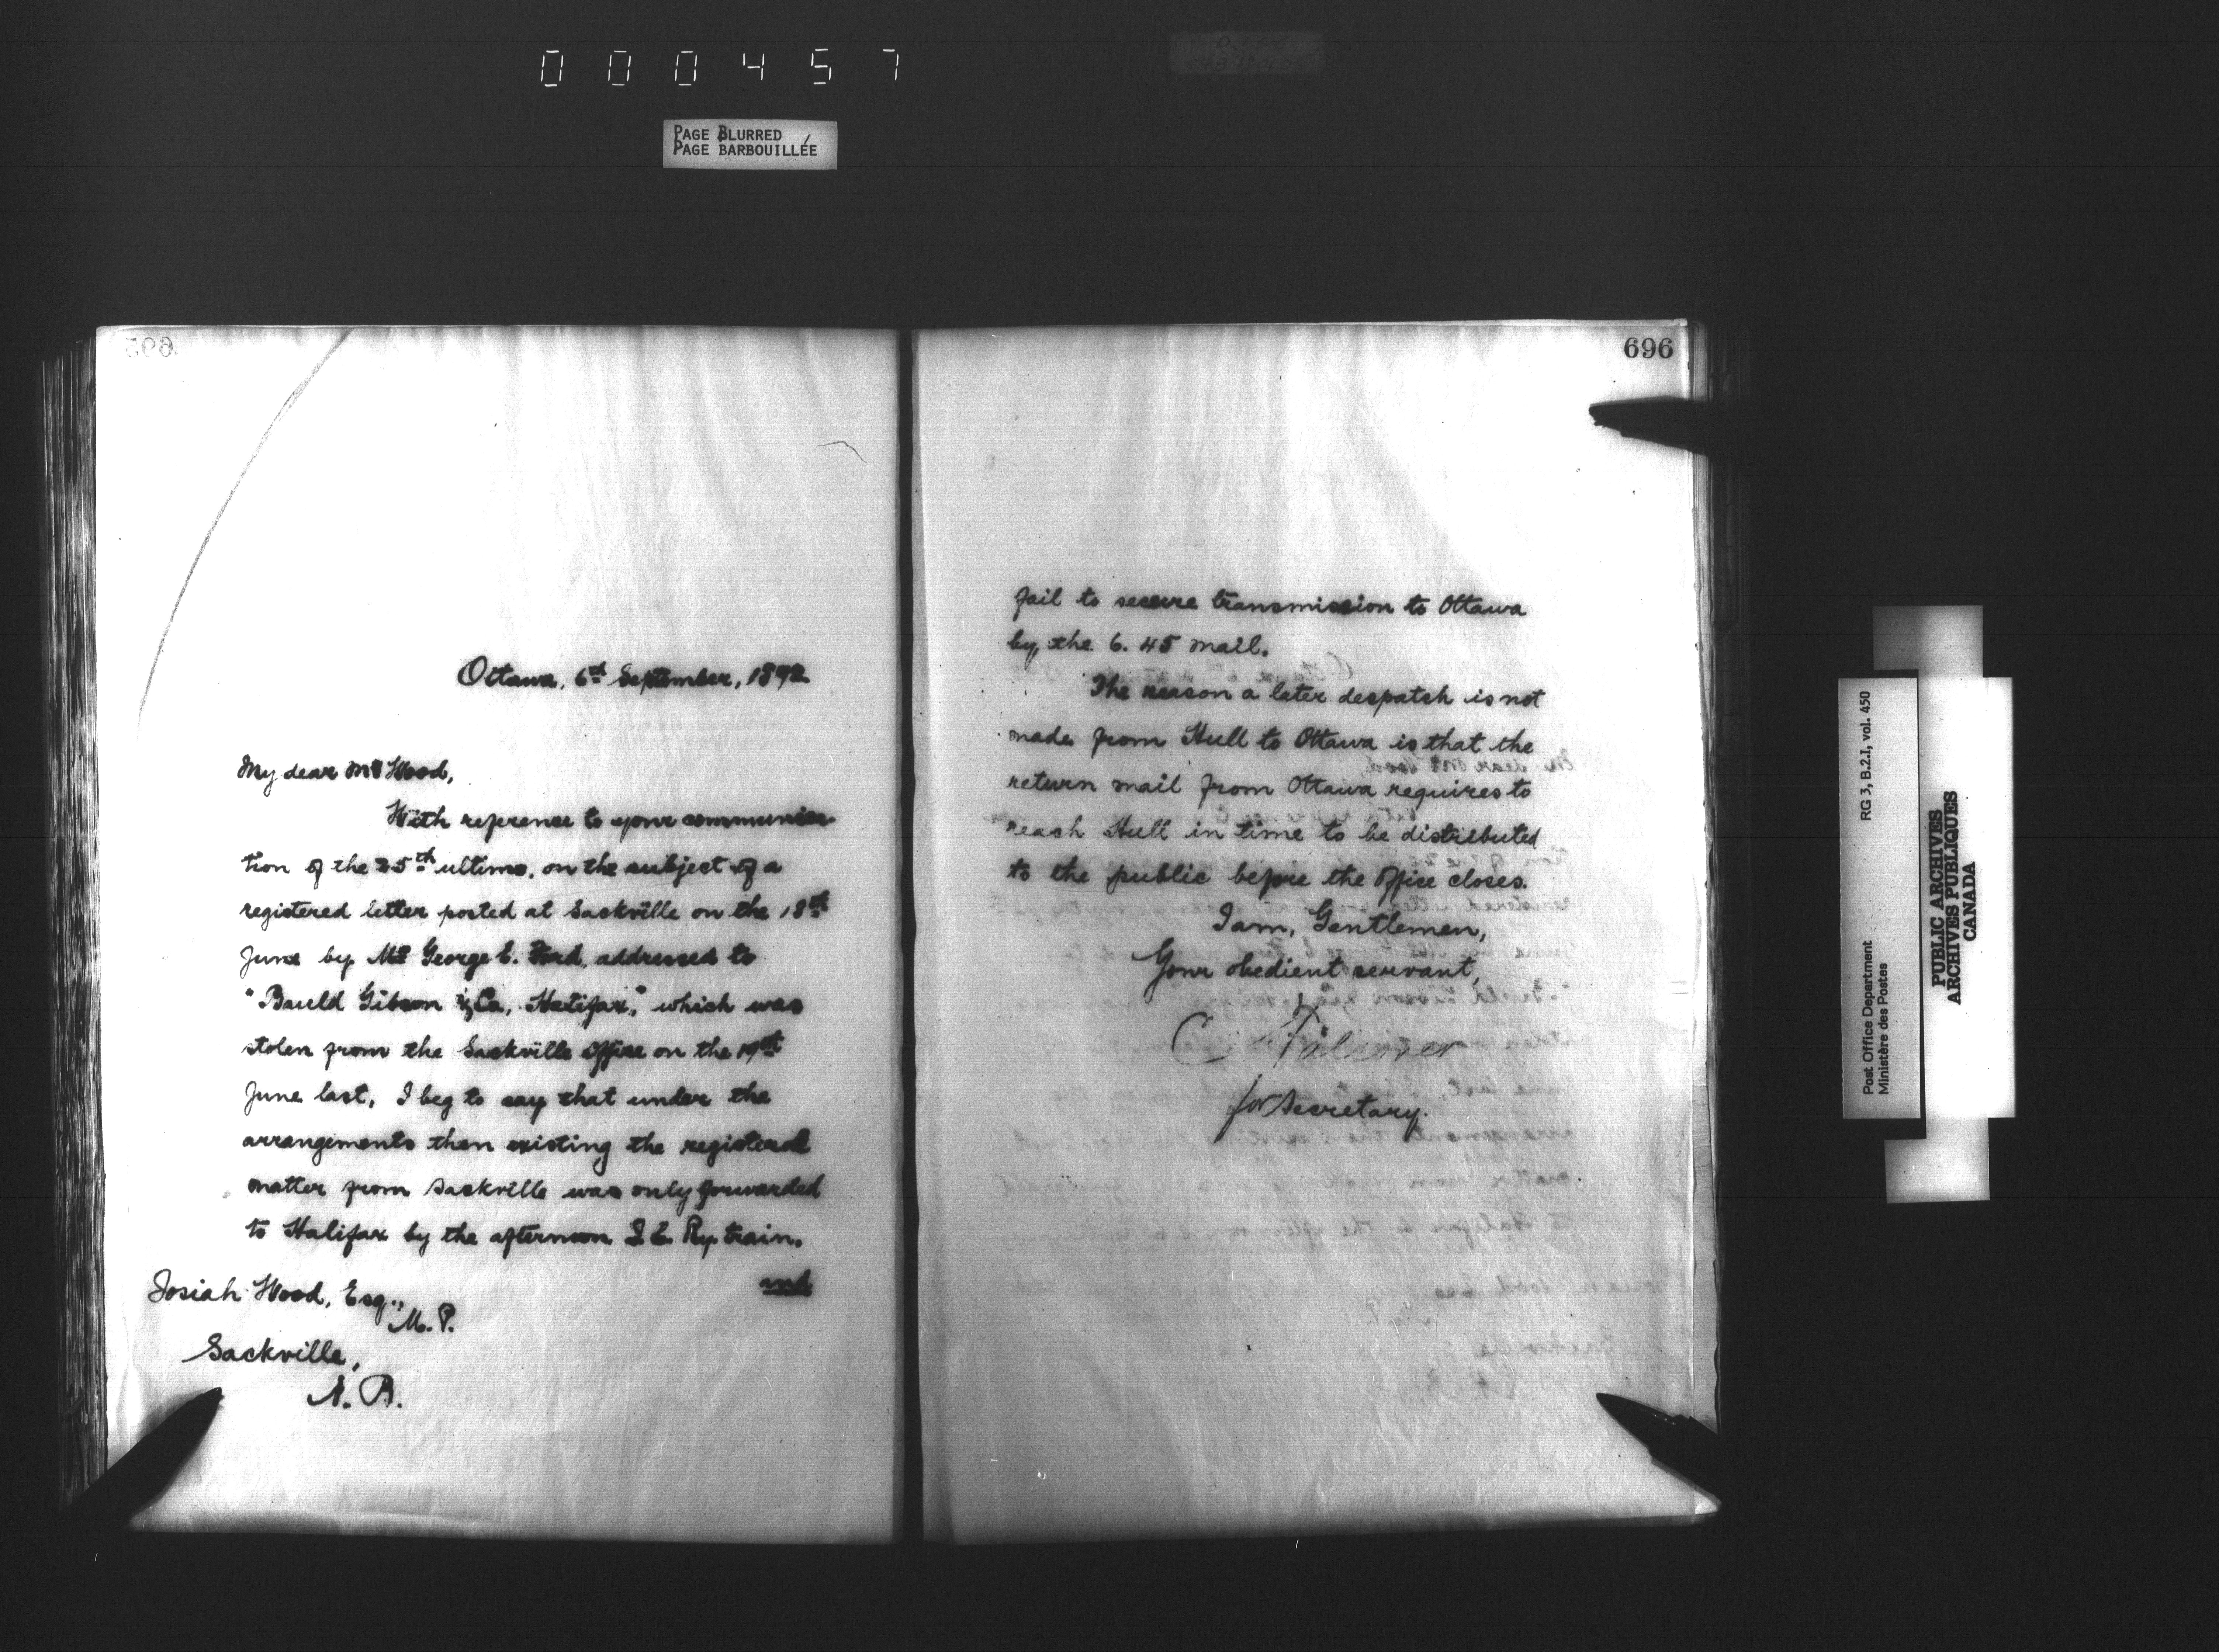 0 0 0 4 5 7
PAGE BLURRED
PAGE BARBOUILLÉE
Ottawa, 6th September, 1892
My dear Mr Wood,
With reference to your communica-
tion of the 25th ultimo, on the subject of a
registered letter posted at Sackville on the 18th
June by Mr George E. Ford, addressed to
"Bauld Gibson & Co, Halifax," which was
stolen from the Sackville office on the 19th
June last, I beg to say that under the
arrangements then existing the registered
matter from Sackville was only forwarded
to Halifax by the afternoon I. C. Ry. train,
and
Josiah Wood, Esq.,
M. P.
Sackville,
N. B.
696
fail to secure transmission to Ottawa
by the 6.45 mail.
The reason a later despatch is not
made from Hull to Ottawa is that the
return mail from Ottawa requires to
reach Hull in time to be distributed
to the public before the office closes.
I am, Gentlemen,
Your obedient servant,
for Secretary.
Post Office Department
Ministère des Postes
RG 3, B.2.I, vol. 450
PUBLIC ARCHIVES
ARCHIVES PUBLIQUES
CANADA